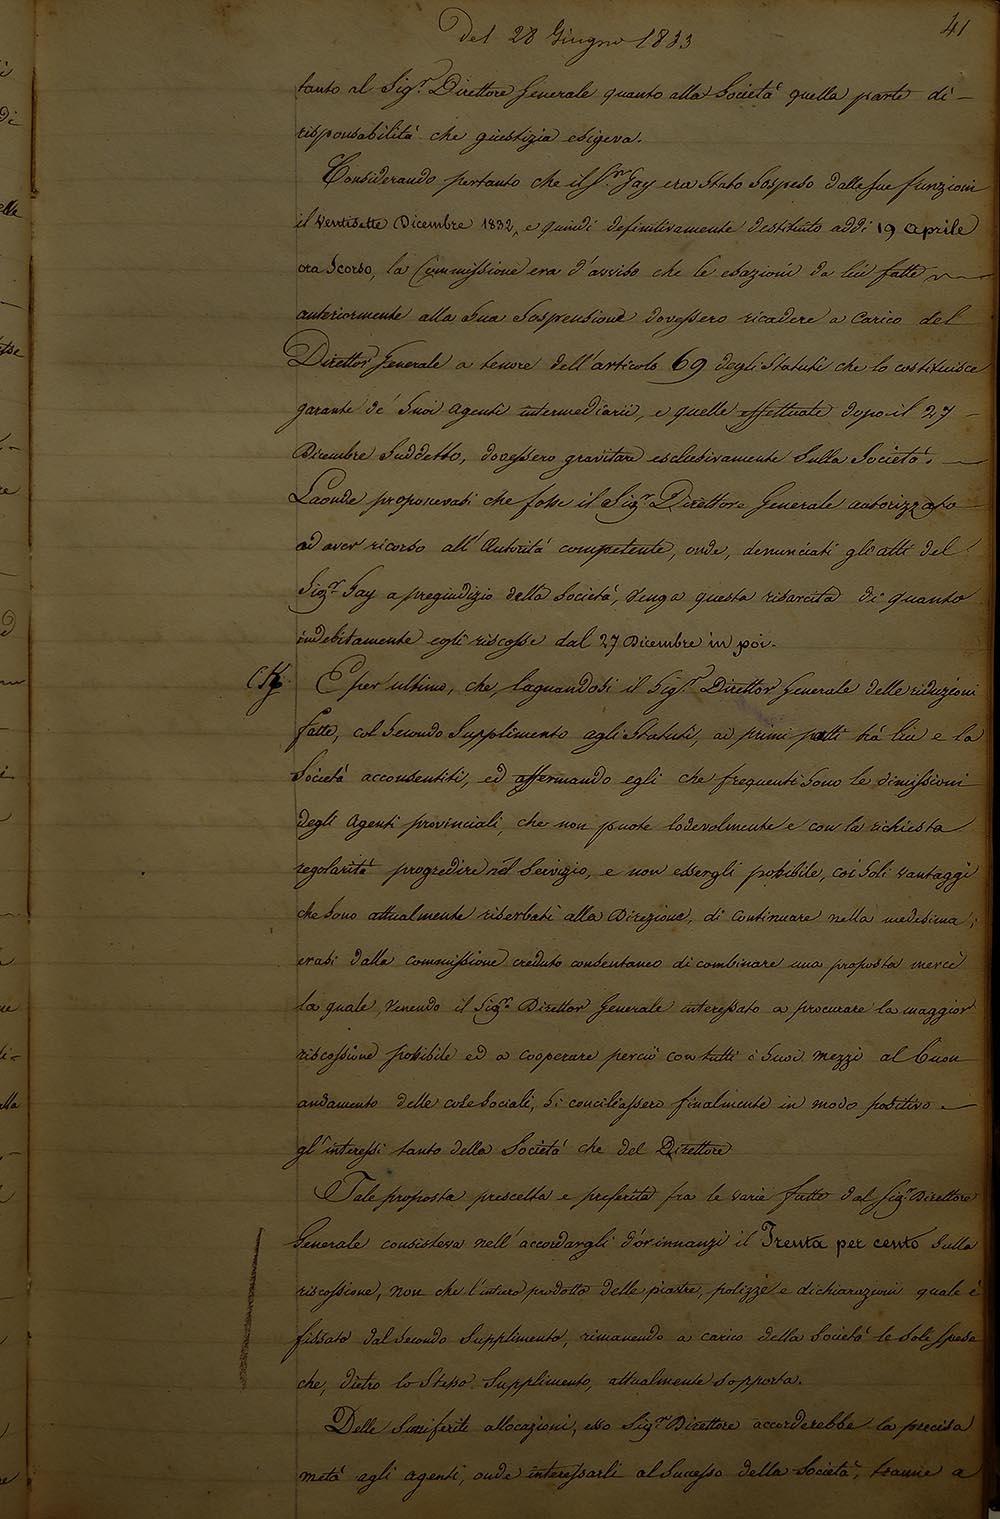 Del 28 Giugno 1833
41
tanto al Sig.r Direttore Generale quanto alla Società quella parte di
risponsabilità che giustizia esigeva.
Considerando pertanto che il S.r Gay era stato sospeso dalle sue funzioni
il Ventisette Dicembre 1832, e quindi definitivamente destituito addì 19 Aprile
ora scorso, la Commissione era d'avviso che le esazioni da lui fatte
anteriormente alla sua sospensione dovessero ricadere a carico del
Direttor Generale a tenore dell'articolo 69 degli Statuti che lo costituisce
garante de' suoi agenti intermediarii, e quelle effettuate dopo il 27
Dicembre suddetto, dovessero gravitare esclusivamente sulla Società.
Laonde proponevasi che fosse il Sig.r Direttore Generale autorizzato
ad aver ricorso all'Autorità competente, onde, denunciati gli atti del
Sig.r Gay a pregiudizio della Società, venga questa risarcita di quanto
indebitamente egli riscosse dal 27 Dicembre in poi.
E per ultimo, che, lagnandosi il Sig.r Direttor Generale delle riduzioni
fatte, col secondo Supplimento agli Statuti, ai primi patti trà lui e la
Società acconsentiti, ed affermando egli che frequenti sono le dimissioni
degli Agenti provinciali, che non puote lodevolmente e con la richiesta
regolarità progredire nel servizio, e non essergli possibile, coi soli vantaggi
che sono attualmente riserbati alla Direzione, di continuare nella medesima;
erasi dalla Commissione creduto consentaneo di combinare una proposta mercè
la quale, venendo il Sig.r Direttor Generale interessato a procurare la maggior
riscossione possibile ed a cooperare perciò con tutti i suoi mezzi al buon
andamento delle cose sociali, si conciliassero finalmente in modo positivo
gl'interessi tanto della Società che del Direttore
Tale proposta prescelta e preferita fra le varie fatte dal Sig.r Direttore
Generale consisteva nell'accordargli d'or'innanzi il Trenta per cento sulla
riscossione, non che l'intero prodotto delle piastre, polizze e dichiarazioni quale è
fissato dal secondo Supplimento, rimanendo a carico della Società le sole spese
che, dietro lo stesso Supplimento, attualmente sopporta.
Delle surriferite allocazioni, esso Sig.r Direttore accorderebbe la precisa
metà agli agenti, onde interessarli al successo della Società, tranne a